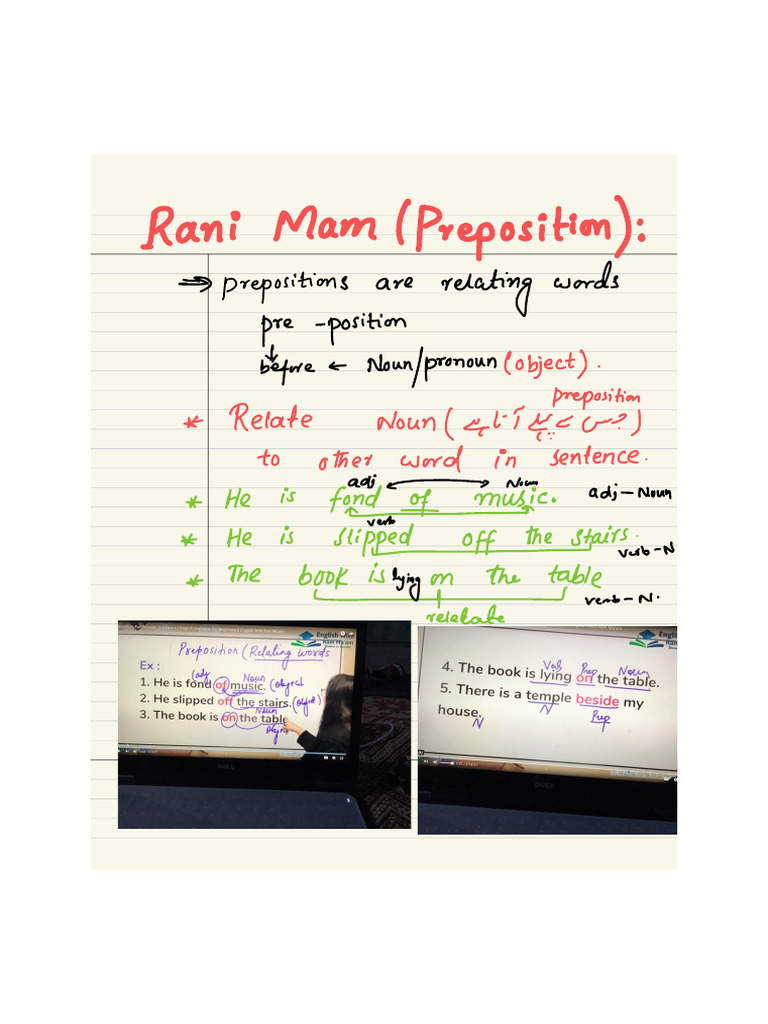 Rani Mam (Preposition):
⇒ prepositions are relating words
pre - position
↓
before ← Noun/pronoun (object).
preposition
* Relate Noun (جس سے پہلے آتا ہے)
to other word in sentence.
adj Noun
* He is fond of music. adj - Noun
verb
* He is slipped off the stairs. verb - N
* The book is lying on the table verb - N.
relatate
English With
Rani Ma'am
Preposition (Relating words
Ex :
(adj Noun
1. He is fond of music. (object
2. He slipped off the stairs. (object)
Noun
3. The book is on the table
object
DELL
Verb Prep Noun
4. The book is lying on the table.
5. There is a temple beside my
N Prep
house.
N
DELL